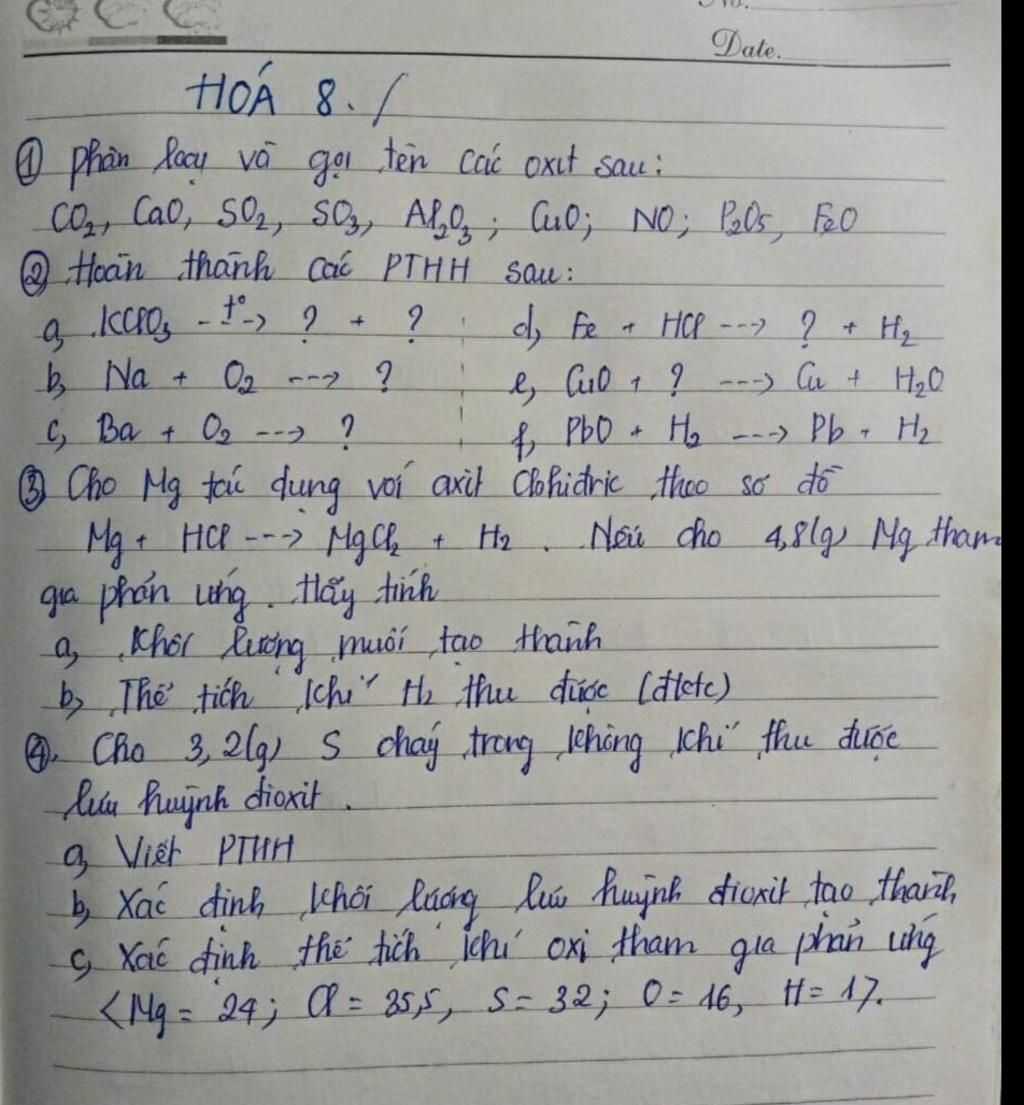 No.
Date.
HOÁ 8./
① phân loại và gọi tên các oxit sau:
CO₂, CaO, SO₂, SO₃, Al₂O₃; CuO; NO; P₂O₅, FeO
② Hoàn thành các PTHH sau:
a, KClO₃ -t°-> ? + ?
d, Fe + HCl ---> ? + H₂
b, Na + O₂ ---> ?
e, CuO + ? ---> Cu + H₂O
c, Ba + O₂ ---> ?
f, PbO + H₂ ---> Pb + H₂
③ Cho Mg tác dụng với axit Clohiđric theo sơ đồ
Mg + HCl ---> MgCl₂ + H₂. Nếu cho 4,8(g) Mg tham
gia phản ứng. Hãy tính
a, Khối lượng muối tạo thành
b, Thể tích khí H₂ thu được (đktc)
④. Cho 3,2(g) S cháy trong không khí thu được
lưu huỳnh đioxit.
a, Viết PTHH
b, Xác định khối lượng lưu huỳnh đioxit tạo thành
c, Xác định thể tích khí oxi tham gia phản ứng
<Mg = 24; Cl = 35,5, S = 32; O = 16, H = 17.